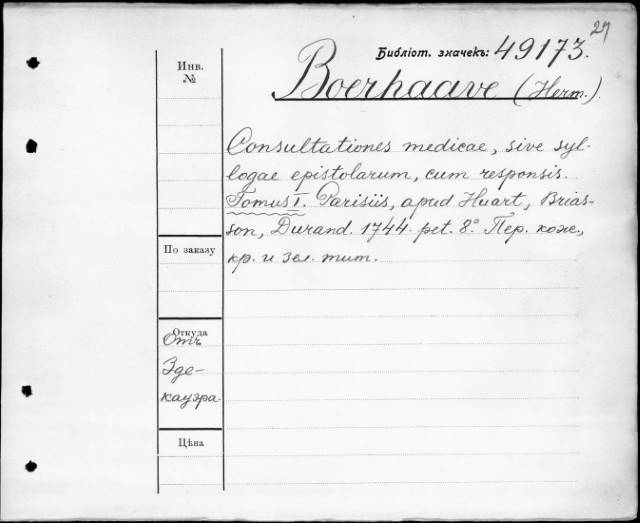 27
Библіот. значекъ: 49173.
Инв.
№
Boerhaave (Herm.).
Consultationes medicae, sive syl-
logae epistolarum, cum responsis.
Tomus I. Parisiis, apud Huart, Brias-
son, Durand. 1744. pet. 8° Пер. кож.,
кр. и зел. тит.
По заказу
Откуда
Отъ
Зде-
кауэра.
Цѣна